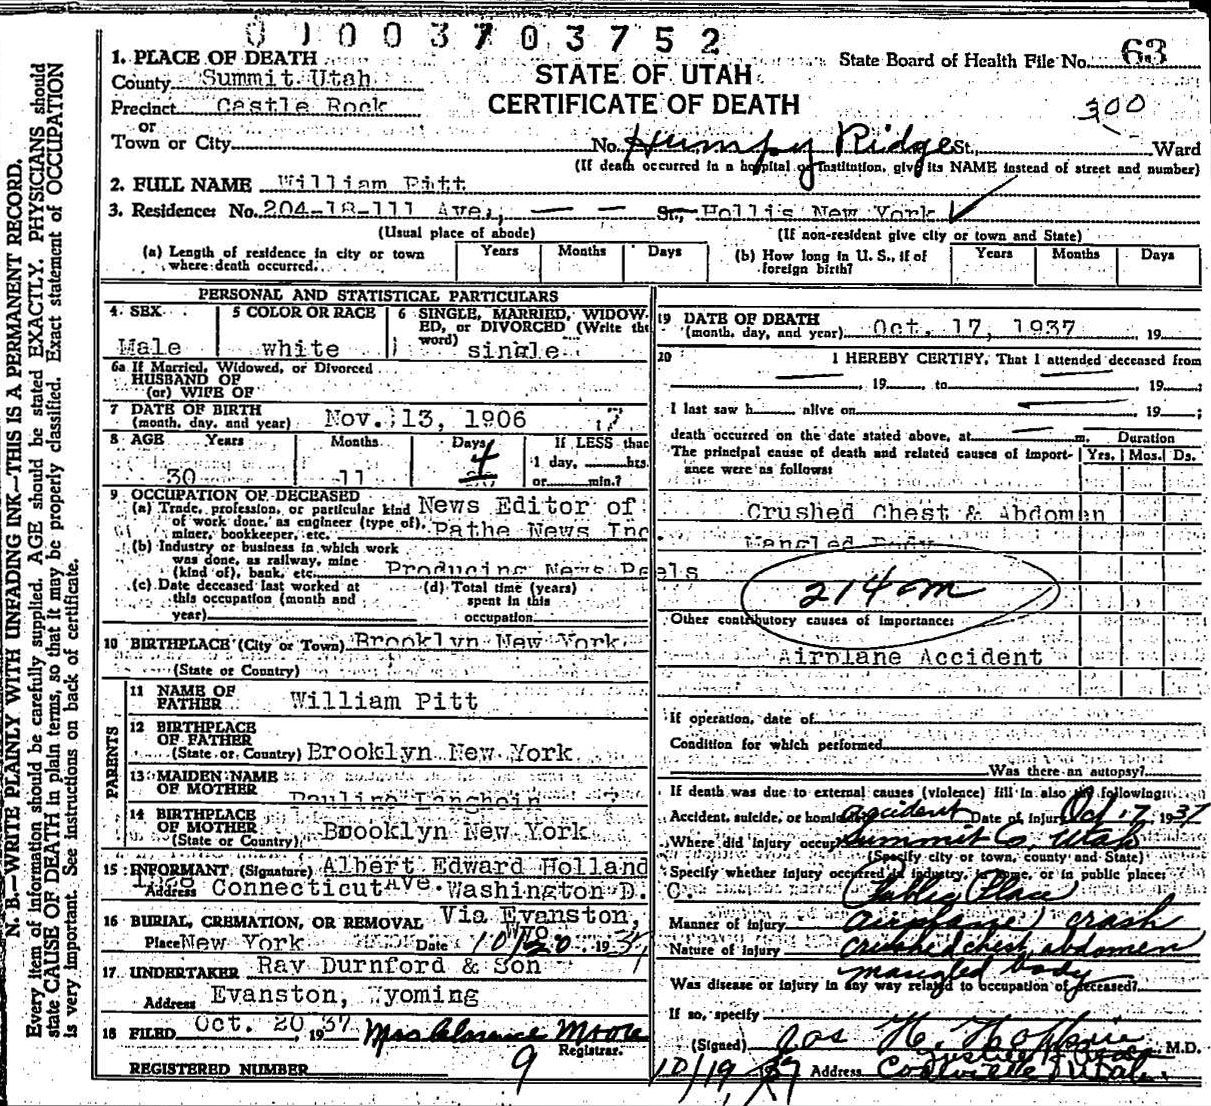 0 1 0 0 3 7 0 3 7 5 2
State Board of Health File No. 63
1. PLACE OF DEATH
STATE OF UTAH
CERTIFICATE OF DEATH
300
County Summit Utah
Precinct Castle Rock
or
Town or City No. Humpy Ridge St., Ward
(If death occurred in a hospital or institution, give its NAME instead of street and number)
2. FULL NAME William Pitt
3. Residence: No. 204-18-111 Ave., St., Hollis New York
(Usual place of abode) (If non-resident give city or town and State)
(a) Length of residence in city or town where death occurred. Years Months Days
(b) How long in U. S., if of foreign birth? Years Months Days
PERSONAL AND STATISTICAL PARTICULARS
4. SEX Male
5 COLOR OR RACE white
6 SINGLE, MARRIED, WIDOWED, or DIVORCED (Write the word) single
6a If Married, Widowed, or Divorced
HUSBAND OF
(or) WIFE OF
7 DATE OF BIRTH
(month, day, and year) Nov. 13, 1906 7
8 AGE Years Months Days If LESS than
30 11 4 1 day, hrs.
or min.?
9 OCCUPATION OF DECEASED
(a) Trade, profession, or particular kind of work done, as engineer (type of), miner, bookkeeper, etc. News Editor of Pathe News Inc.
(b) Industry or business in which work was done, as railway, mine (kind of), bank, etc. Producing News Reels
(c) Date deceased last worked at this occupation (month and year)
(d) Total time (years) spent in this occupation
10 BIRTHPLACE (City or Town) Brooklyn New York
(State or Country)
PARENTS
11 NAME OF FATHER William Pitt
12 BIRTHPLACE OF FATHER
(State or Country) Brooklyn New York
13 MAIDEN NAME OF MOTHER Pauline Langhein ?
14 BIRTHPLACE OF MOTHER
(State or Country) Brooklyn New York
15 INFORMANT, (Signature) Albert Edward Holland
Address Connecticut Ave. Washington D. C.
16 BURIAL, CREMATION, OR REMOVAL Via Evanston, Wyo
Place New York Date 10/20, 1937
17 UNDERTAKER Ray Durnford & Son
Address Evanston, Wyoming
18 FILED Oct. 20, 1937 Mrs Clarence Moore
Registrar.
REGISTERED NUMBER 9
19 DATE OF DEATH
(month, day, and year) Oct. 17, 1937 19
20 I HEREBY CERTIFY, That I attended deceased from
, 19 to , 19 ;
I last saw h alive on , 19 ;
death occurred on the date stated above, at m. Duration
The principal cause of death and related causes of importance were as follows: Yrs. Mos. Ds.
Crushed Chest & Abdomen
Mangled Body
214 cm
Other contributory causes of importance:
Airplane Accident
If operation, date of
Condition for which performed
Was there an autopsy?
If death was due to external causes (violence) fill in also the following:
Accident, suicide, or homicide accident Date of injury Oct 17, 1937
Where did injury occur Summit Co, Utah
(Specify city or town, county and State)
Specify whether injury occurred in industry, in home, or in public place:
Public Place
Manner of injury airplane crash
Nature of injury crushed chest abdomen
mangled body
Was disease or injury in any way related to occupation of deceased?
If so, specify
(Signed) Jas H. Hopkin M.D.
10/19/37 Address Coalville Utah
N. B.—WRITE PLAINLY WITH UNFADING INK—THIS IS A PERMANENT RECORD.
Every item of information should be carefully supplied. AGE should be stated EXACTLY. PHYSICIANS should
state CAUSE OF DEATH in plain terms, so that it may be properly classified. Exact statement of OCCUPATION
is very important. See instructions on back of certificate.